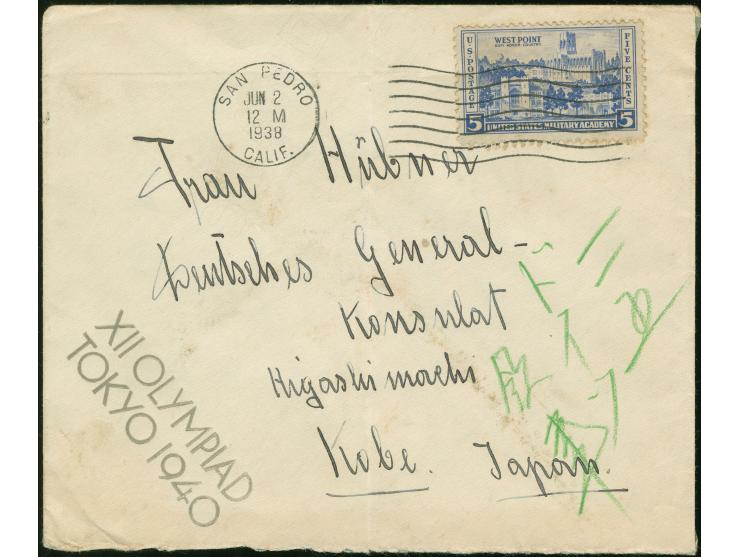 SAN PEDRO
JUN 2
12 M
1938
CALIF.
U·S·POSTAGE
WEST POINT
FIVE CENTS
5 UNITED STATES MILITARY ACADEMY 5
Frau Hübner
Deutsches General-
Konsulat
Higashimachi
Kobe. Japan.
XII OLYMPIAD
TOKYO 1940